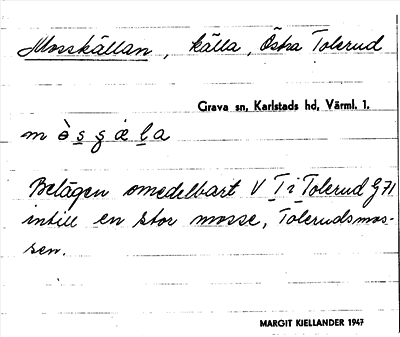 Mosskällan, källa, Östra Tolerud
Grava sn, Karlstads hd, Värml. l.
m ò s g æ l a
Belägen omedelbart V I i Tolerud G 71
intill en stor mosse, Tolerudsmos-
sen.
MARGIT KIELLANDER 1947